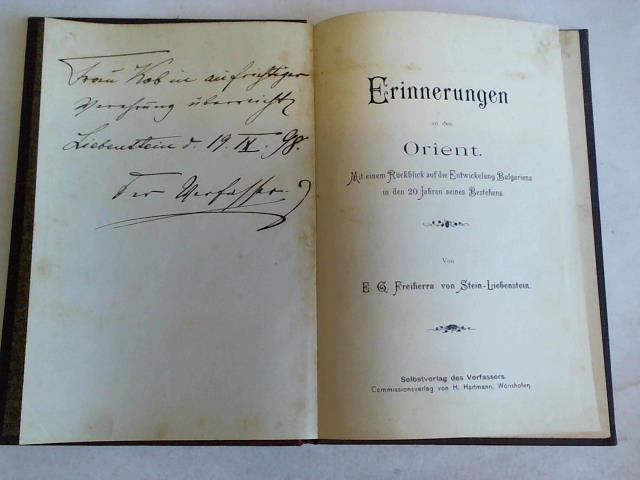 Frau Kob in aufrichtiger
Verehrung überreicht
Liebenstein d. 19. IX. 98.
Der Verfasser.
Erinnerungen
an den
Orient.
Mit einem Rückblick auf die Entwickelung Bulgariens
in den 20 Jahren seines Bestehens.
Von
E. G. Freiherrn von Stein-Liebenstein.
Selbstverlag des Verfassers.
Commissionsverlag von H. Hartmann, Wörishofen.